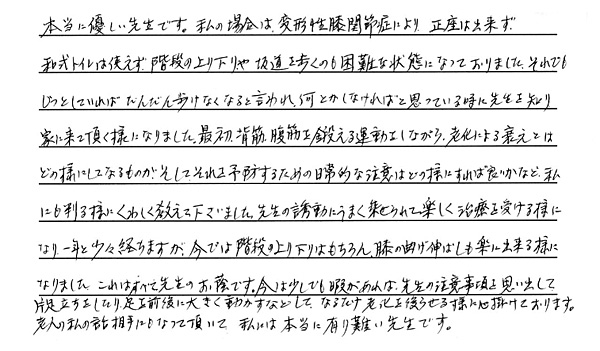 本当に優しい先生です。私の場合は、変形性膝関節症により 正座は出来ず
和式トイレは使えず 階段の上り下りや 坂道を歩くのも困難な状態になっておりました。それでも
じっとしていれば だんだん歩けなくなると言われ、何とかしなければと思っている時に先生を知り
家に来て頂く様になりました。最初、背筋、腹筋を鍛える運動をしながら、老化による衰えとは
どの様にしてなるものか、そしてそれを予防するための日常的な注意はどの様にすれば良いかなど、私
にも判る様にくわしく教えて下さいました。先生の誘動にうまく乗せられて、楽しく治療を受ける様に
なり、一年と少々経ちますが、今では階段の上り下りはもちろん、膝の曲げ伸ばしも楽に出来る様に
なりました。これはすべて先生のお蔭です。今は少しでも暇があれば、先生の注意事項を思い出して
片足立ちをしたり、足を前後に大きく動かすなどして、なるだけ老化を後らせる様に心掛けております。
老人の私の話相手にもなって頂いて 私には本当に有り難い先生です。